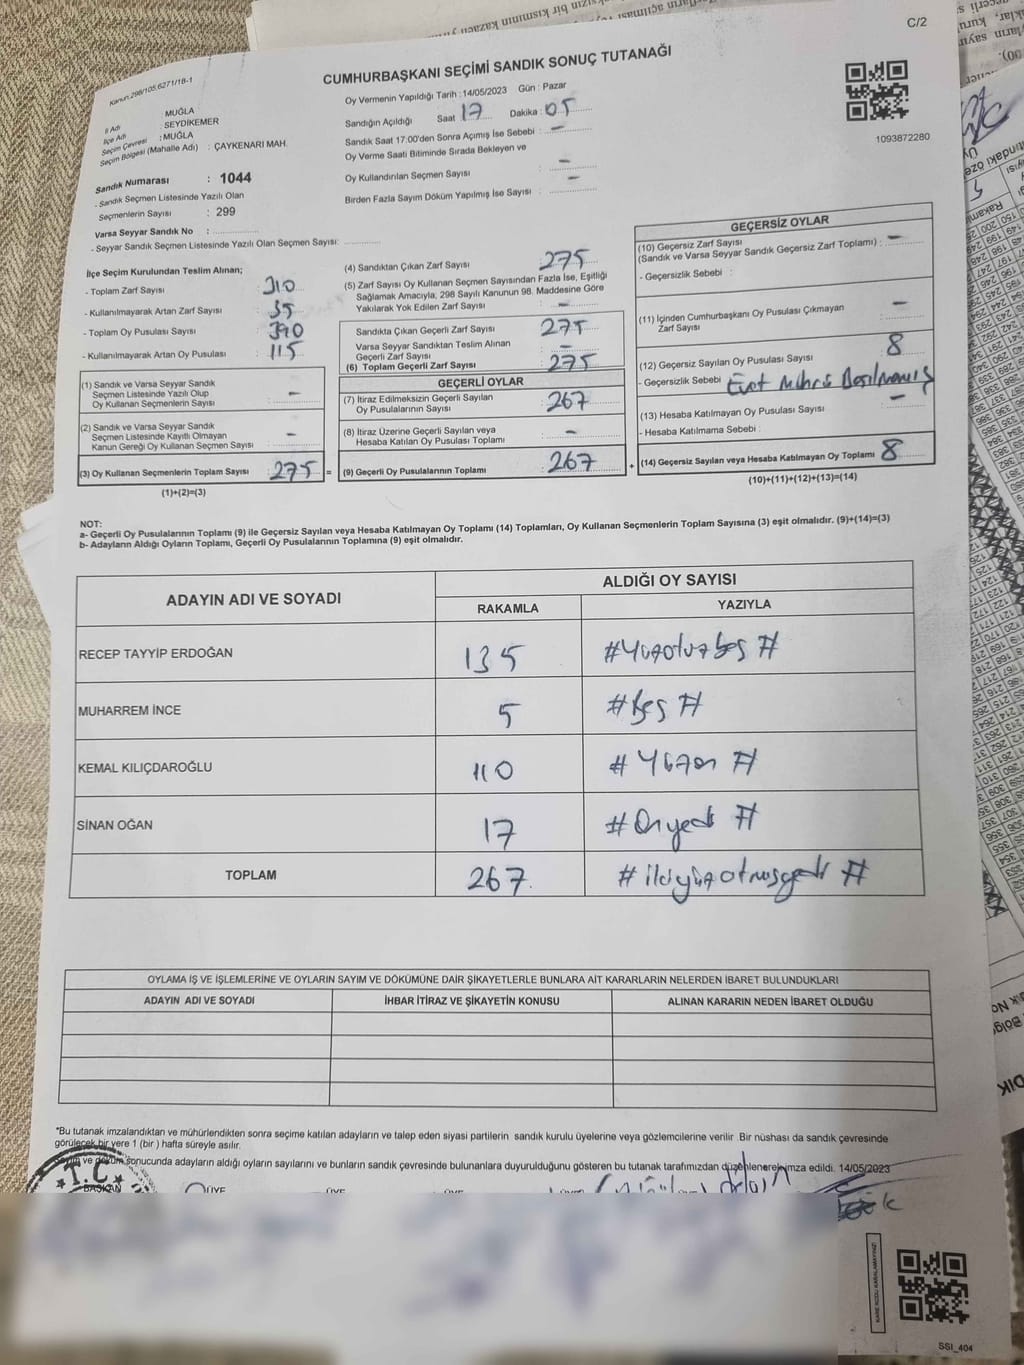 C/2
Kanun.298/105,6271/18-1
CUMHURBAŞKANI SEÇİMİ SANDIK SONUÇ TUTANAĞI
İl Adı : MUĞLA
İlçe Adı : SEYDİKEMER
Seçim Çevresi : MUĞLA
Seçim Bölgesi (Mahalle Adı) : ÇAYKENARI MAH.
Oy Vermenin Yapıldığı Tarih : 14/05/2023 Gün : Pazar
Sandığın Açıldığı Saat 17 Dakika : 05
Sandık Saat 17:00'den Sonra Açımış İse Sebebi : -
Oy Verme Saati Bitiminde Sırada Bekleyen ve
Oy Kullandırılan Seçmen Sayısı : -
Birden Fazla Sayım Döküm Yapılmış İse Sayısı : -
1093872280
Sandık Numarası : 1044
- Sandık Seçmen Listesinde Yazılı Olan
Seçmenlerin Sayısı : 299
Varsa Seyyar Sandık No :
- Seyyar Sandık Seçmen Listesinde Yazılı Olan Seçmen Sayısı:
İlçe Seçim Kurulundan Teslim Alınan;
- Toplam Zarf Sayısı : 310
- Kullanılmayarak Artan Zarf Sayısı : 35
- Toplam Oy Pusulası Sayısı : 390
- Kullanılmayarak Artan Oy Pusulası : 115
(1) Sandık ve Varsa Seyyar Sandık
Seçmen Listesinde Yazılı Olup
Oy Kullanan Seçmenlerin Sayısı : -
(2) Sandık ve Varsa Seyyar Sandık
Seçmen Listesinde Kayıtlı Olmayan
Kanun Gereği Oy Kullanan Seçmen Sayısı : -
(3) Oy Kullanan Seçmenlerin Toplam Sayısı : 275 =
(1)+(2)=(3)
(4) Sandıktan Çıkan Zarf Sayısı : 275
(5) Zarf Sayısı Oy Kullanan Seçmen Sayısından Fazla İse, Eşitliği
Sağlamak Amacıyla, 298 Sayılı Kanunun 98. Maddesine Göre
Yakılarak Yok Edilen Zarf Sayısı : -
Sandıkta Çıkan Geçerli Zarf Sayısı : 275
Varsa Seyyar Sandıktan Teslim Alınan
Geçerli Zarf Sayısı : -
(6) Toplam Geçerli Zarf Sayısı : 275
GEÇERLİ OYLAR
(7) İtiraz Edilmeksizin Geçerli Sayılan
Oy Pusulalarının Sayısı : 267
(8) İtiraz Üzerine Geçerli Sayılan veya
Hesaba Katılan Oy Pusulası Toplamı : -
(9) Geçerli Oy Pusulalarının Toplamı : 267 +
GEÇERSİZ OYLAR
(10) Geçersiz Zarf Sayısı
(Sandık ve Varsa Seyyar Sandık Geçersiz Zarf Toplamı) : -
- Geçersizlik Sebebi :
(11) İçinden Cumhurbaşkanı Oy Pusulası Çıkmayan
Zarf Sayısı : -
(12) Geçersiz Sayılan Oy Pusulası Sayısı : 8
- Geçersizlik Sebebi : Evet Mührü Basılmamış
(13) Hesaba Katılmayan Oy Pusulası Sayısı : -
- Hesaba Katılmama Sebebi :
(14) Geçersiz Sayılan veya Hesaba Katılmayan Oy Toplamı : 8
(10)+(11)+(12)+(13)=(14)
NOT:
a- Geçerli Oy Pusulalarının Toplamı (9) ile Geçersiz Sayılan veya Hesaba Katılmayan Oy Toplamı (14) Toplamları, Oy Kullanan Seçmenlerin Toplam Sayısına (3) eşit olmalıdır. (9)+(14)=(3)
b- Adayların Aldığı Oyların Toplamı, Geçerli Oy Pusulalarının Toplamına (9) eşit olmalıdır.
ADAYIN ADI VE SOYADI
ALDIĞI OY SAYISI
RAKAMLA YAZIYLA
RECEP TAYYİP ERDOĞAN 135 #Yüzotuzbeş #
MUHARREM İNCE 5 #Beş #
KEMAL KILIÇDAROĞLU 110 #Yüzon #
SİNAN OĞAN 17 #Onyedi #
TOPLAM 267 #ikiyüzotmışyedi #
OYLAMA İŞ VE İŞLEMLERİNE VE OYLARIN SAYIM VE DÖKÜMÜNE DAİR ŞİKAYETLERLE BUNLARA AİT KARARLARIN NELERDEN İBARET BULUNDUKLARI
ADAYIN ADI VE SOYADI İHBAR İTİRAZ VE ŞİKAYETİN KONUSU ALINAN KARARIN NEDEN İBARET OLDUĞU
*Bu tutanak imzalandıktan ve mühürlendikten sonra seçime katılan adayların ve talep eden siyasi partilerin sandık kurulu üyelerine veya gözlemcilerine verilir .Bir nüshası da sandık çevresinde
görülecek bir yere 1 (bir ) hafta süreyle asılır.
Sayım ve döküm sonucunda adayların aldığı oyların sayılarını ve bunların sandık çevresinde bulunanlara duyurulduğunu gösteren bu tutanak tarafımızdan düzenlenerek imza edildi. 14/05/2023
T.C.
BAŞKAN ÜYE ÜYE ÜYE
KARE KODU KARALAMAYINIZ!
SSİ_404